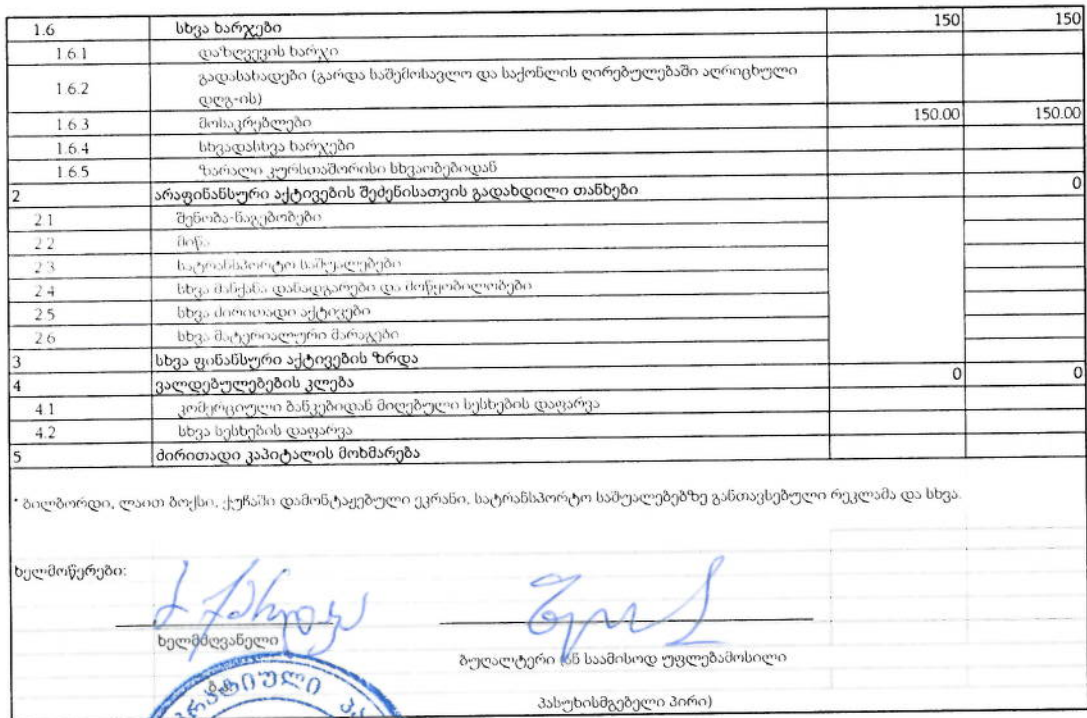 1.6 სხვა ხარჯები 150 150
1.6.1 დაზღვევის ხარჯი
1.6.2 გადასახადები (გარდა საშემოსავლო და საქონლის ღირებულებაში აღრიცხული
დღგ-ის)
1.6.3 მოსაკრებლები 150.00 150.00
1.6.4 სხვადასხვა ხარჯები
1.6.5 ზარალი კურსთაშორისი სხვაობებიდან
2 არაფინანსური აქტივების შეძენისათვის გადახდილი თანხები 0
2.1 შენობა-ნაგებობები
2.2 მიწა
2.3 სატრანსპორტო საშუალებები
2.4 სხვა მანქანა დანადგარები და მოწყობილობები
2.5 სხვა ძირითადი აქტივები
2.6 სხვა მატერიალური მარაგები
3 სხვა ფინანსური აქტივების ზრდა
4 ვალდებულებების კლება 0 0
4.1 კომერციული ბანკებიდან მიღებული სესხების დაფარვა
4.2 სხვა სესხების დაფარვა
5 ძირითადი კაპიტალის მოხმარება
* ბილბორდი, ლაით ბოქსი, ქუჩაში დამონტაჟებული ეკრანი, სატრანსპორტო საშუალებებზე განთავსებული რეკლამა და სხვა.
ხელმოწერები:
ხელმძღვანელი
ბუღალტერი (ან საამისოდ უფლებამოსილი
პასუხისმგებელი პირი)